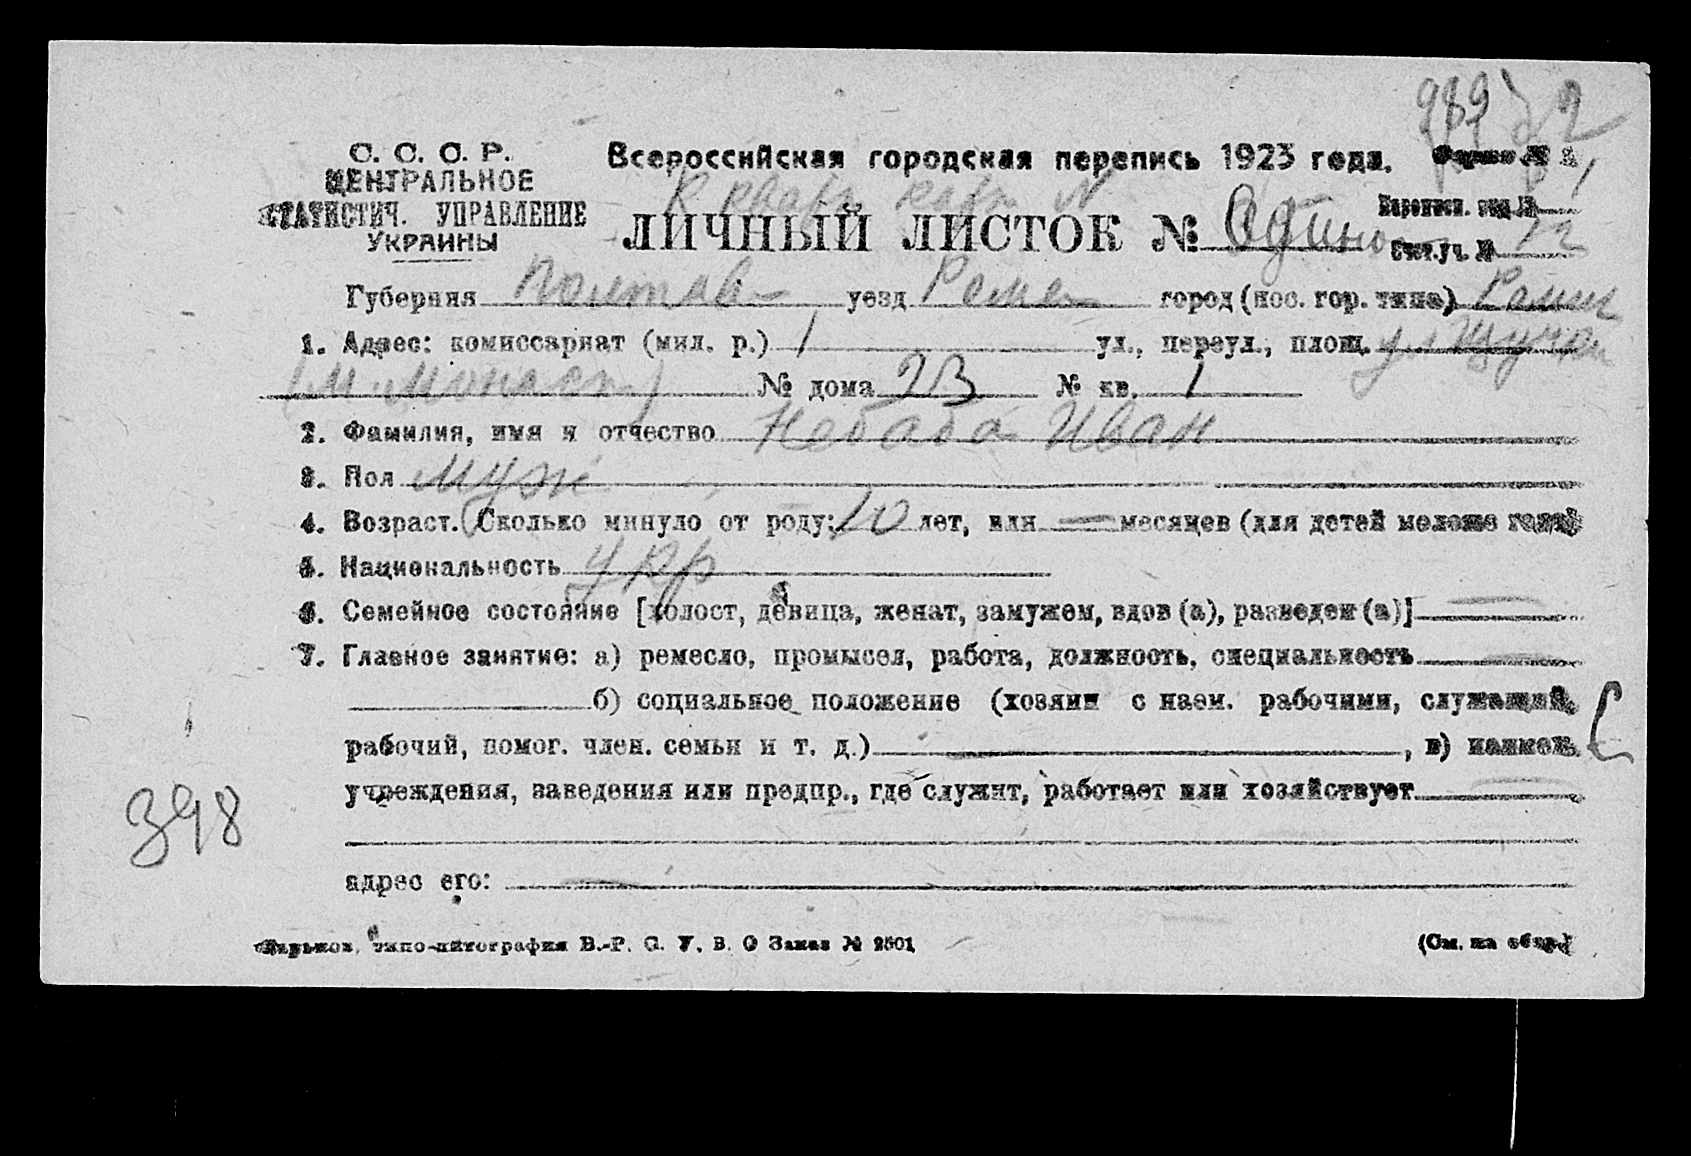 989
С. С. С. Р.
ЦЕНТРАЛЬНОЕ
СТАТИСТИЧ. УПРАВЛЕНИЕ
УКРАИНЫ
Всероссийская городская перепись 1923 года.
К кварт. карт. №
ЛИЧНЫЙ ЛИСТОК №
Счет. уч. № 12
Губерния Полтав уезд Роме город (пос. гор. типа) Ромны
1. Адрес: комиссариат (мил. р.) 1 ул., переул., площ. ул
(М. Монаст) № дома 23 № кв. 1
2. Фамилия, имя и отчество Небаба Иван
3. Пол муж
4. Возраст. (Сколько минуло от роду: 10 лет, или — месяцев (для детей моложе года)
5. Национальность укр
6. Семейное состояние [холост, девица, женат, замужем, вдов (а), разведен (а)] —
7. Главное занятие: а) ремесло, промысел, работа, должность, специальность —
б) социальное положение (хозяин с наем. рабочими, служащий,
рабочий, помог. член. семьи и т. д.) , в) наимен.
учреждения, заведения или предпр., где служит, работает или хозяйствует —
адрес его: —
398
Харьков, типо-литография В.-Р. С. У. В. О Заказ № 2501
(См. на обор.)